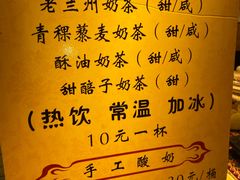 老兰州奶茶（甜/咸）
青稞藜麦奶茶（甜/咸）
酥油奶茶（甜/咸）
甜醅子奶茶（甜）
（热饮 常温 加冰）
10元一杯
手工酸奶
30元/桶